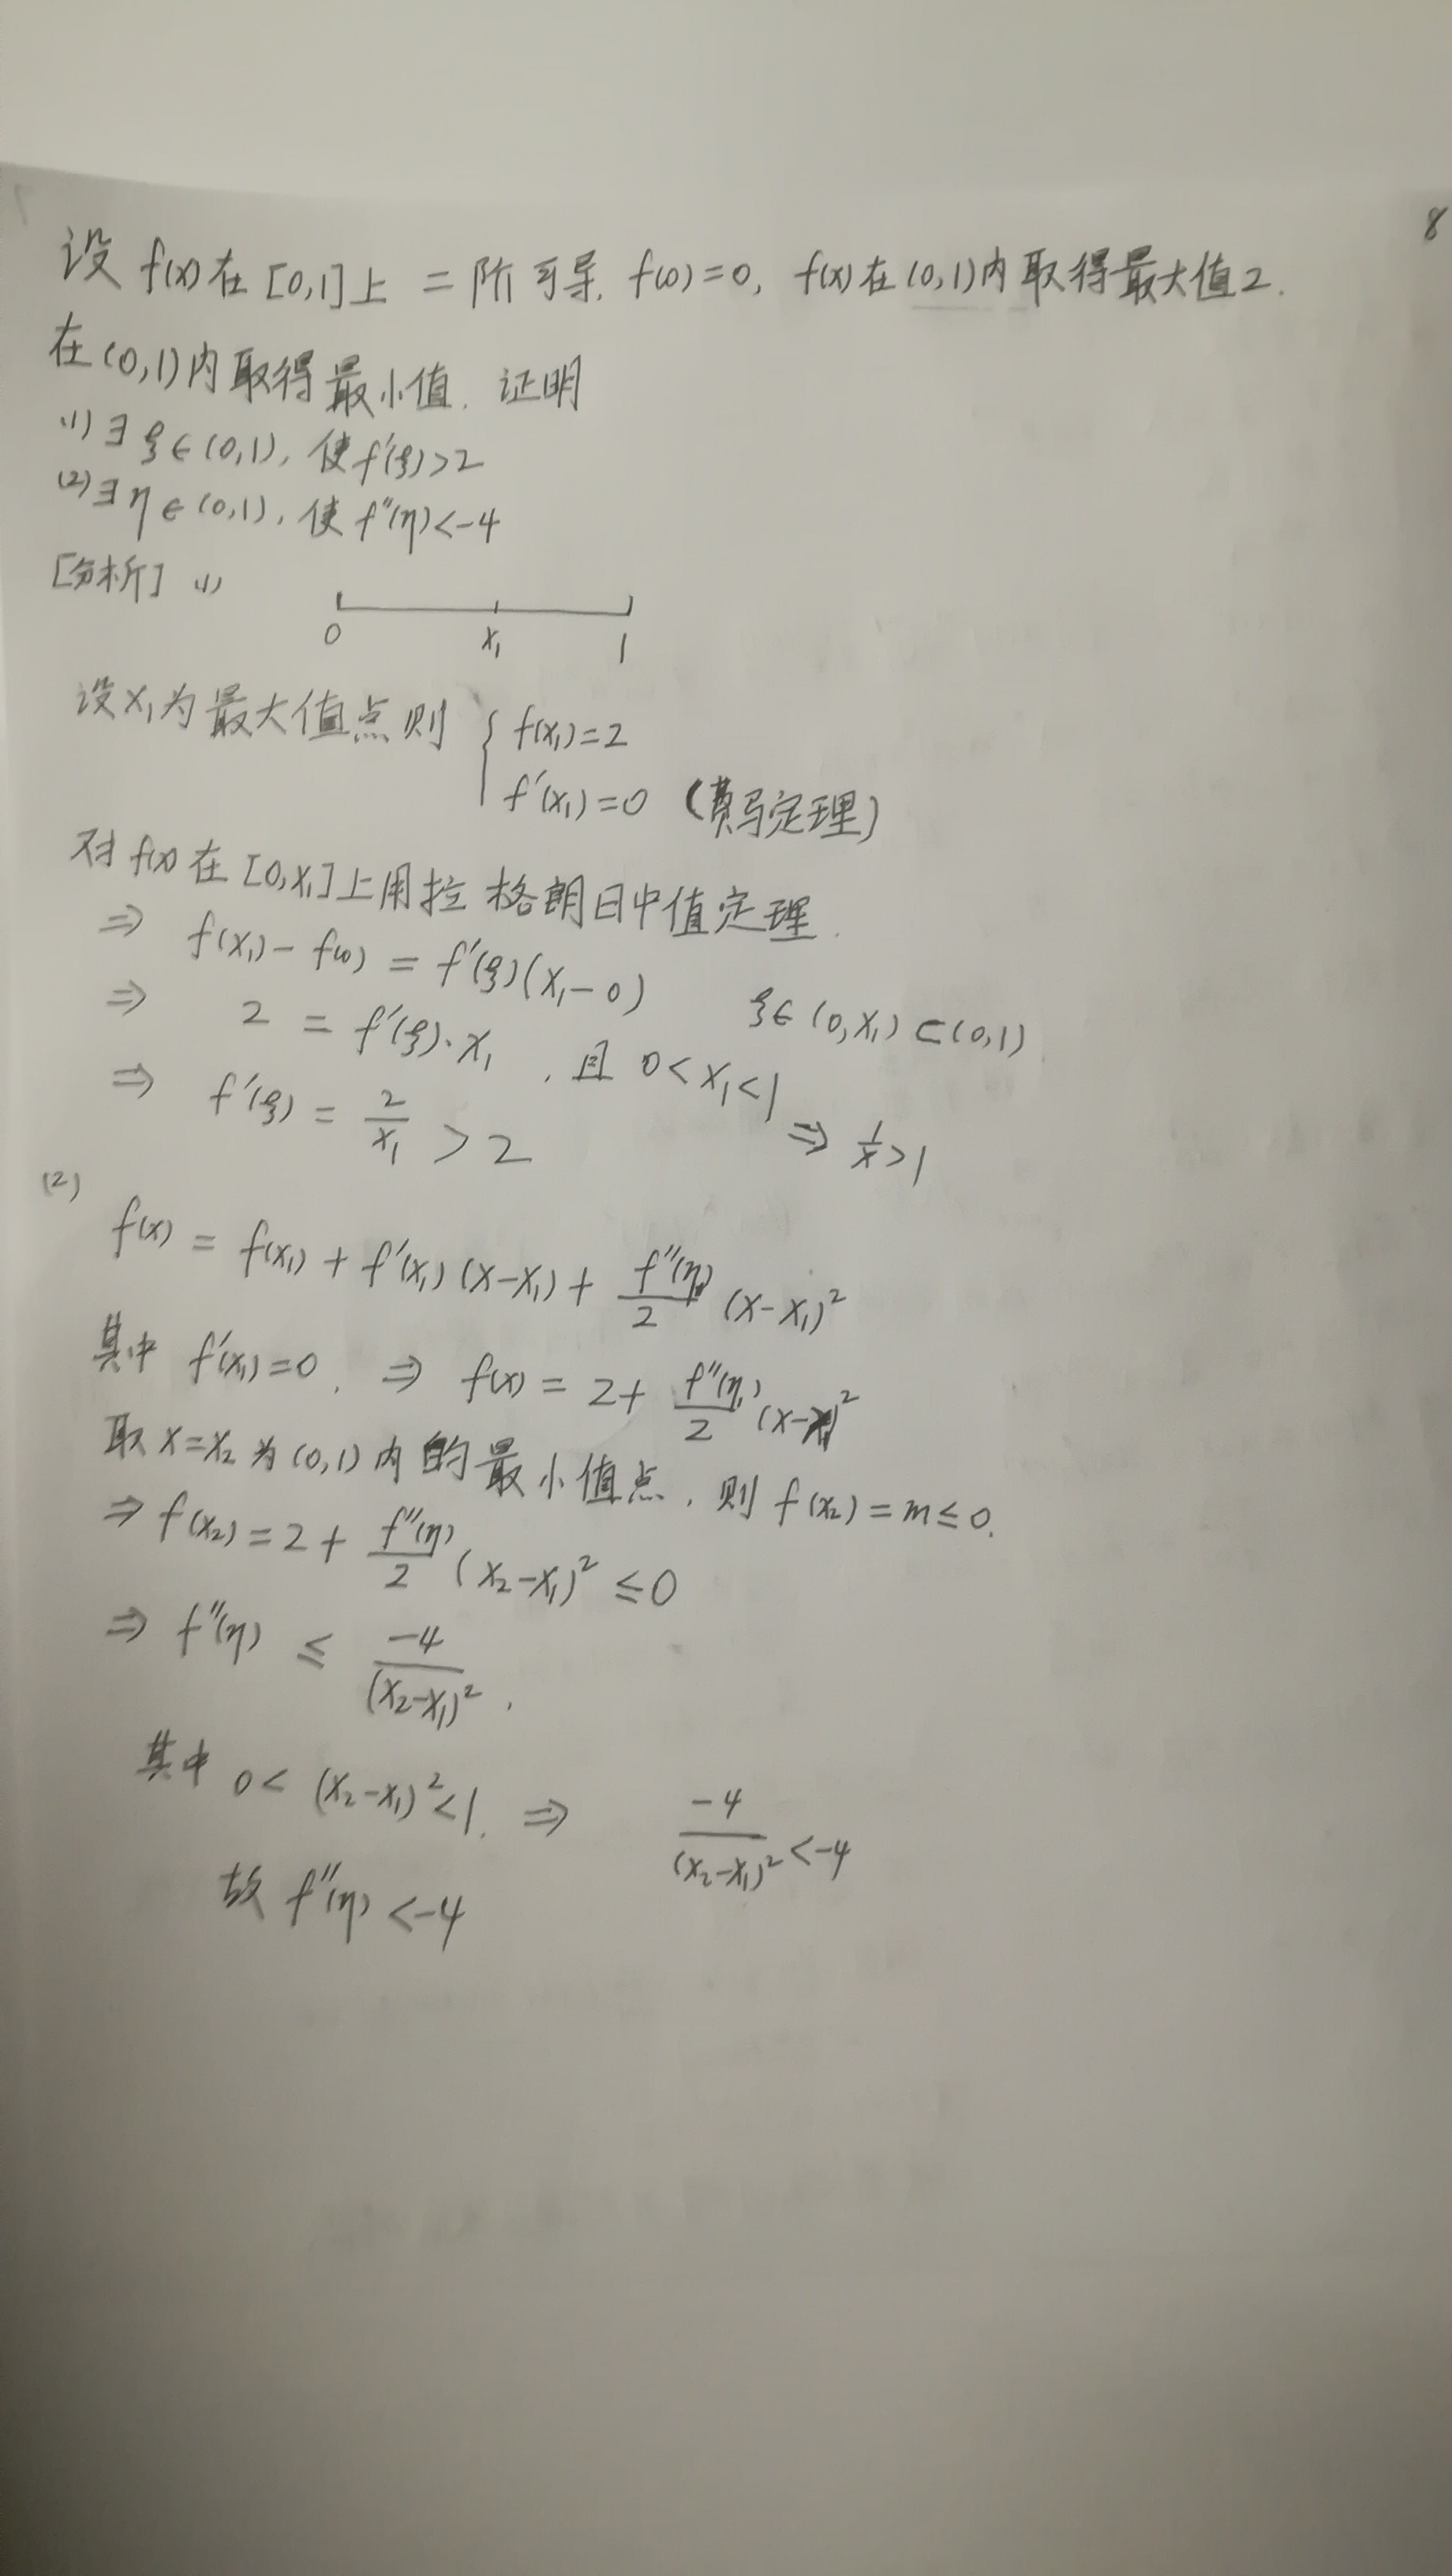 8
设 f(x) 在 [0,1] 上 二阶可导, f(0)=0, f(x) 在 (0,1) 内取得最大值2.
在 (0,1) 内取得最小值. 证明
(1) ∃ ξ∈(0,1), 使 f'(ξ)>2
(2) ∃ η∈(0,1), 使 f''(η)<-4
[分析] (1)
0 x₁ 1
设 x₁ 为最大值点则 { f(x₁)=2
f'(x₁)=0 (费马定理)
对 f(x) 在 [0,x₁] 上用拉格朗日中值定理.
⇒ f(x₁)-f(0) = f'(ξ)(x₁-0) ξ∈(0,x₁)⊂(0,1)
⇒ 2 = f'(ξ)·x₁, 且 0<x₁<1
⇒ f'(ξ) = 2/x₁ > 2 ⇒ 1/x>1
(2)
f(x) = f(x₁) + f'(x₁)(x-x₁) + f''(η)/2 (x-x₁)²
其中 f'(x₁)=0. ⇒ f(x) = 2+ f''(η)/2 (x-x₁)²
取 x=x₂ 为 (0,1) 内的最小值点, 则 f(x₂)=m≤0.
⇒ f(x₂)=2+ f''(η)/2 (x₂-x₁)² ≤0
⇒ f''(η) ≤ -4/(x₂-x₁)².
其中 0<(x₂-x₁)²<1. ⇒ -4/(x₂-x₁)² <-4
故 f''(η)<-4